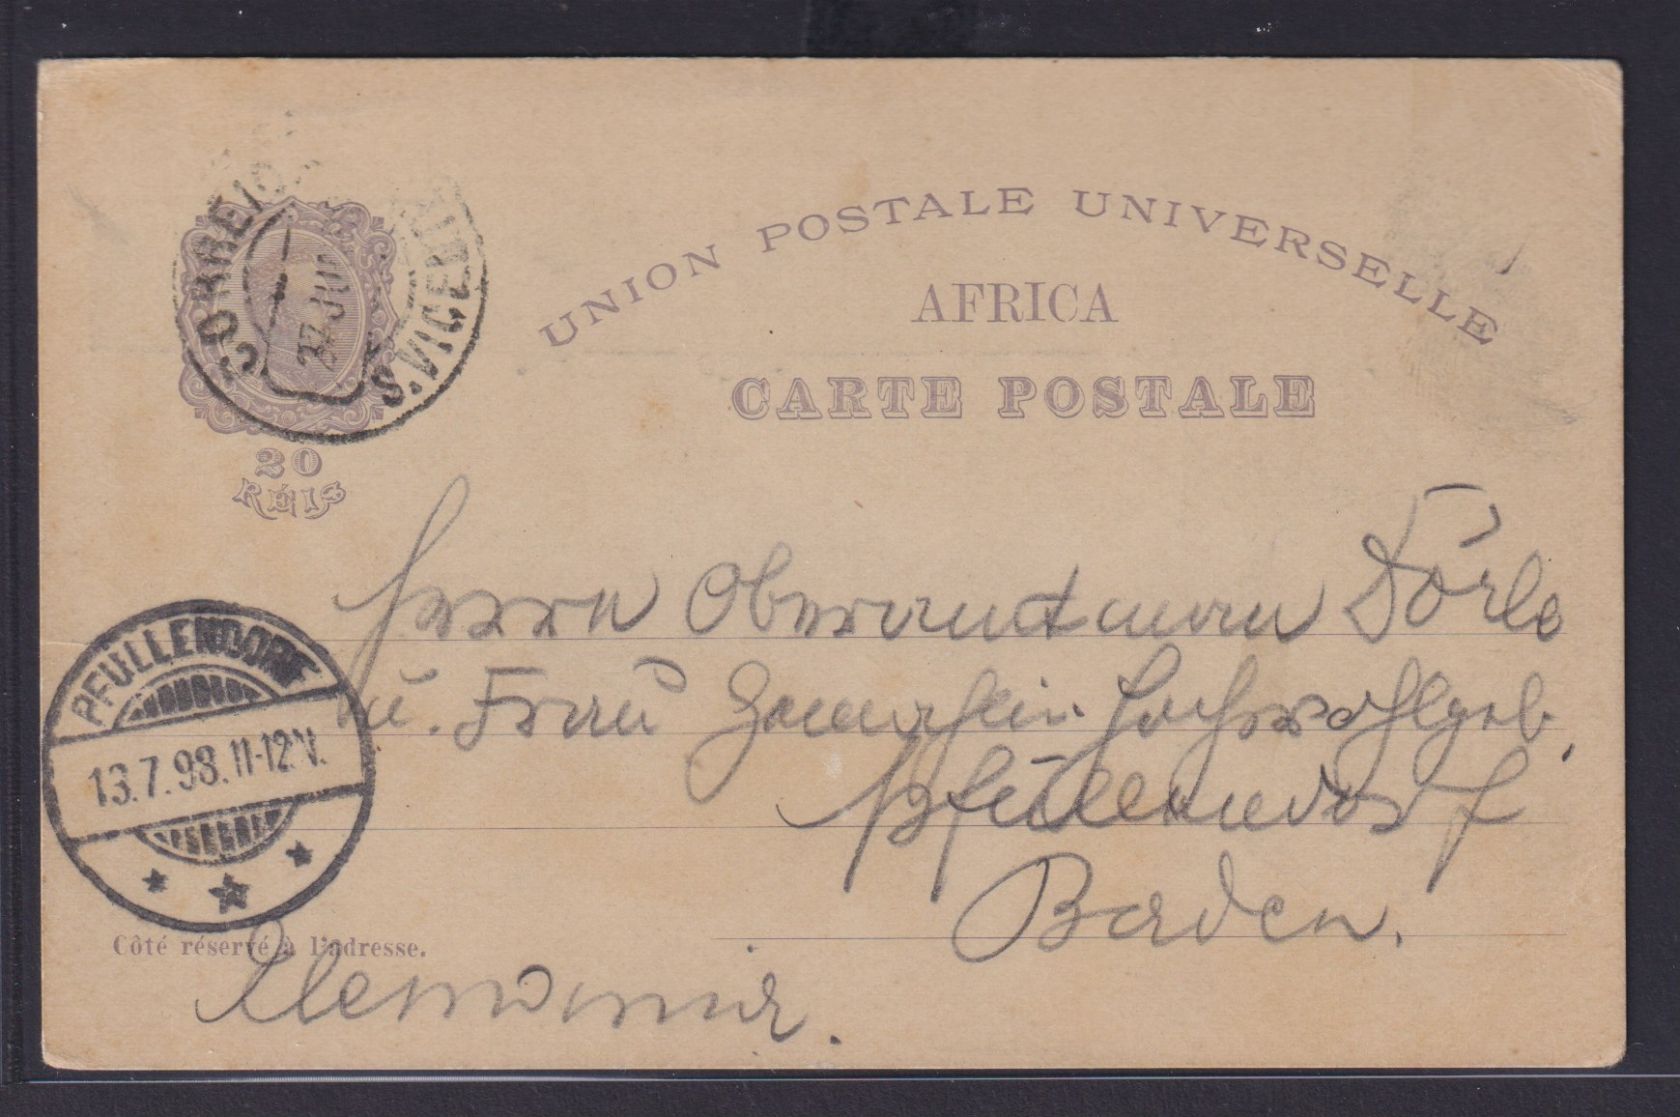 UNION POSTALE UNIVERSELLE
AFRICA
CARTE POSTALE
CORREIO
27 JUN
S. VICENTE
20
RÉIS
Herrn Oberamtmann Dörle
u. Frau Gemahlin Hochwohlgeb.
Pfullendorf
Baden.
PFULLENDORF
13.7.98.11-12 V.
Côté réservé à l'adresse.
Alemania.